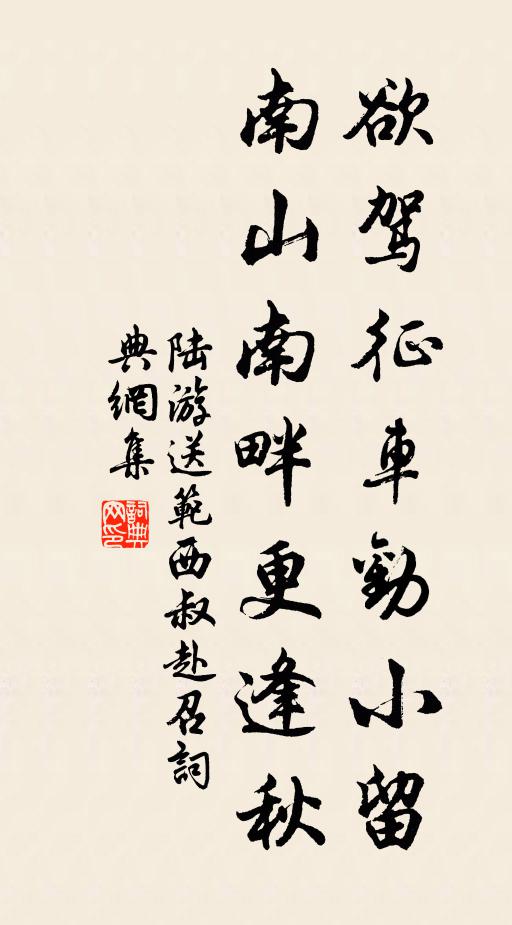 欲駕征車勸小留
南山南畔更逢秋
陆游送範西叔赴召詞
典網集
詞典
网印